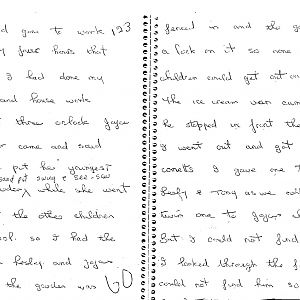 d gone to work 123
free hours that
I had done my
and house work
three oclock Joyce
came and said
put her youngest
put swing & see-saw
while she went
the other children
ool. so I had the
Lesley and Joyce
the garden was 60
fenced in and the g
a lock on it so none
children could get out on
the ice cream van cam
he stopped in front the
I went out and got
cornetts I gave one t
Lesley & Tony as we call
twin one to Joyce's
But I could not find
I looked through the f
could not find him so